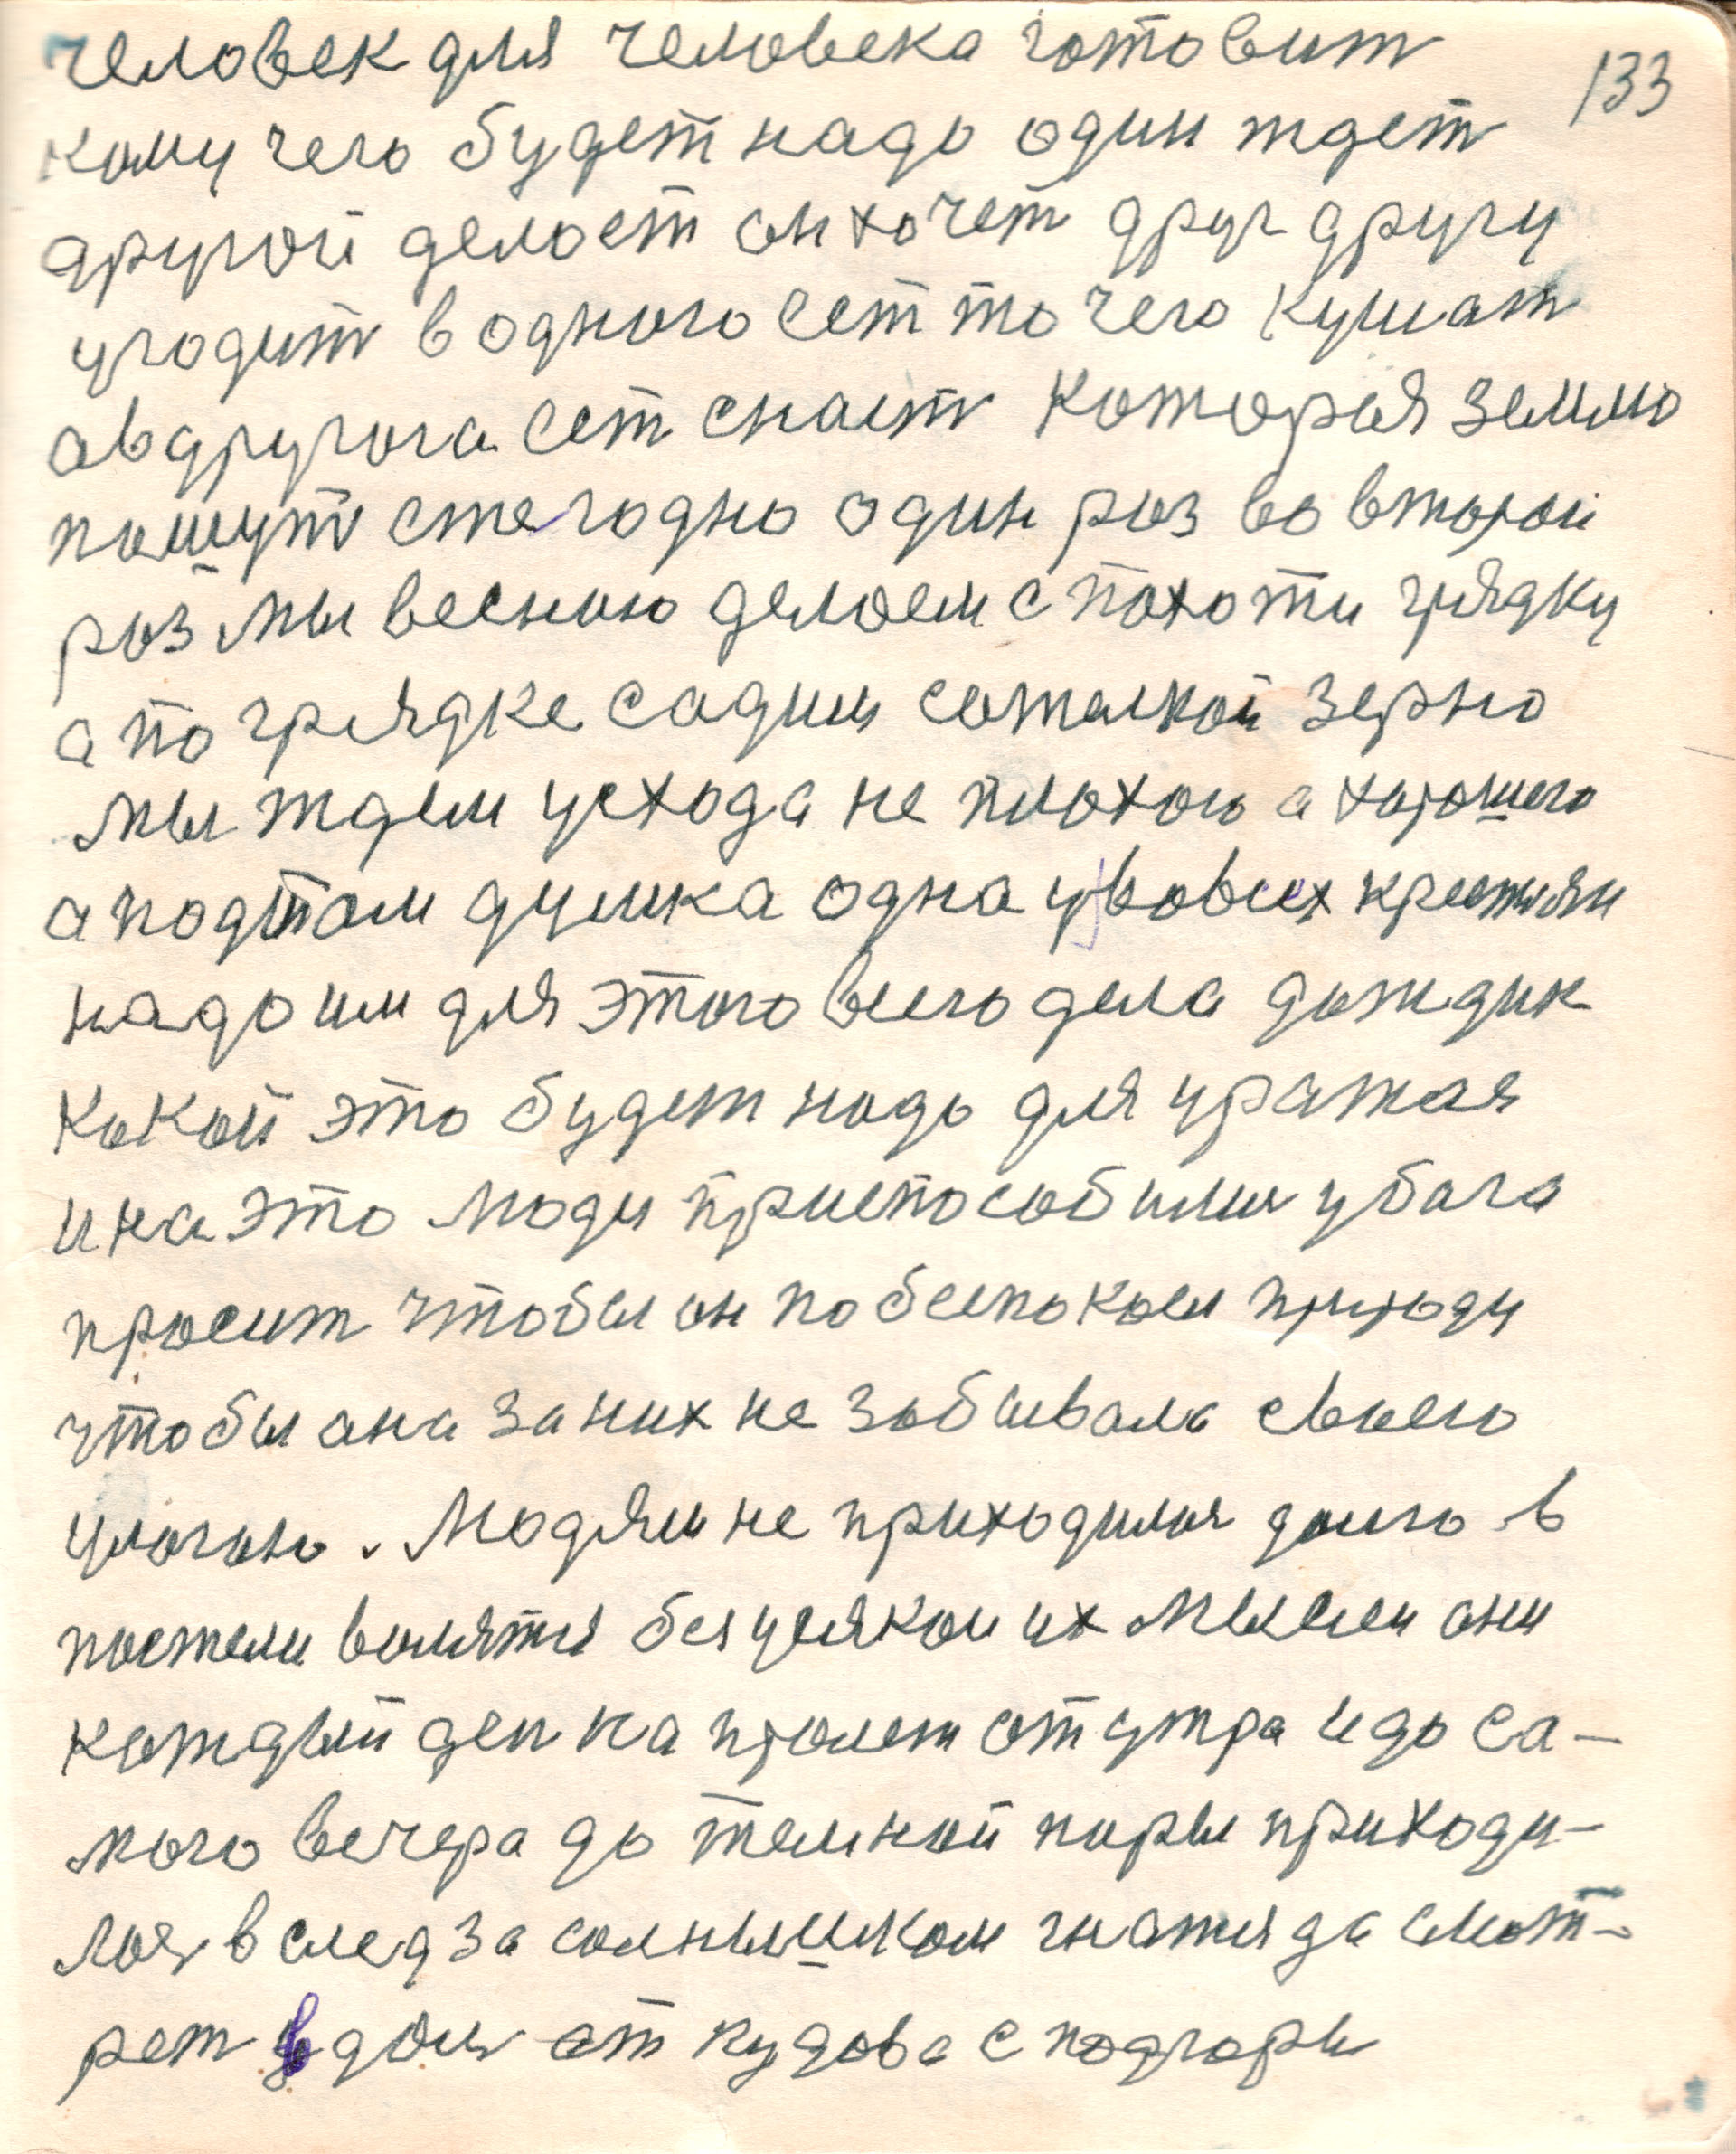 человек для человека готовит
133
кому чего будет надо один ждет
другой делоет он хочет друг другу
угодит в одного сет то чего кушат
ав другога сет спаст которыя землю
пашут стегодно один роз во второй
роз мы весною делоем с пахоти грядку
а по грядке садим сажалкой зерно
мы ждем усхода не плохого а хорошего
а подтом думка одна у вовсех крестян
надо им для этого всего дела дождик
кокой это будет надо для уражая
и на это люди приспособилис у бога
просит чтобы он побеспокоел природу
чтобы она за них не забывала своего
улогоно. Людям не приходилося долго в
постели волятся без усякои их мыслеи они
каждый ден напролет от утра и до са-
мого вечера до темной поры приходи-
лося в след за солнышком гнатся да смот-
рет в дом от кудова с подгоры